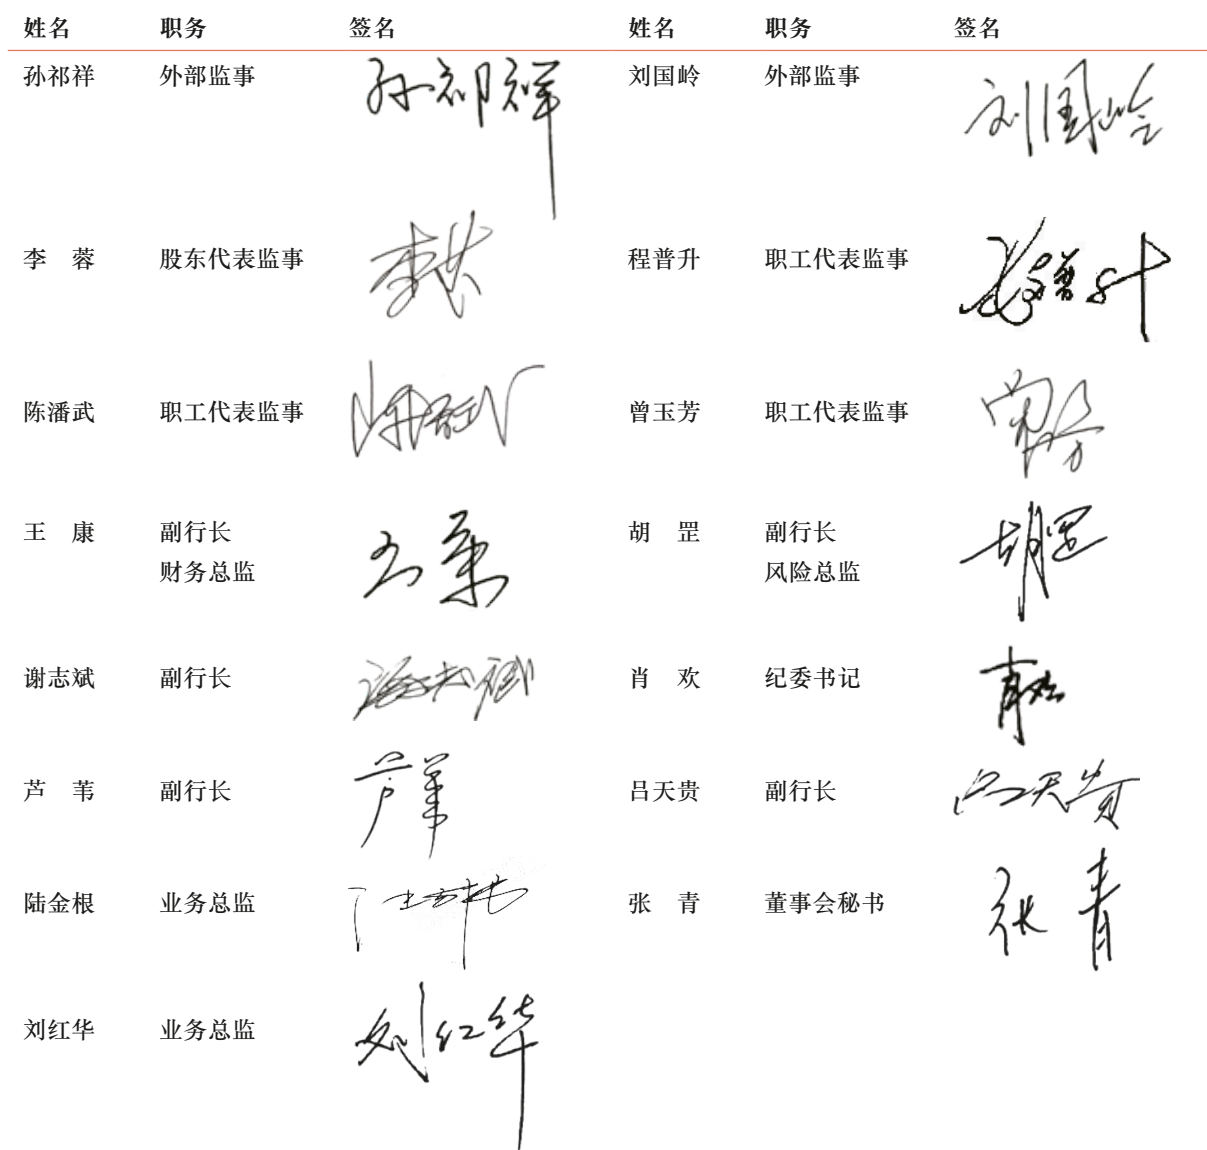 姓名 职务 签名 姓名 职务 签名
孙祁祥 外部监事 孙祁祥 刘国岭 外部监事 刘国岭
李　蓉 股东代表监事 李蓉 程普升 职工代表监事 程普升
陈潘武 职工代表监事 陈潘武 曾玉芳 职工代表监事
王　康 副行长 王康 胡　罡 副行长 胡罡
财务总监 风险总监
谢志斌 副行长 谢志斌 肖　欢 纪委书记 肖欢
芦　苇 副行长 芦苇 吕天贵 副行长 吕天贵
陆金根 业务总监 张　青 董事会秘书 张青
刘红华 业务总监 刘红华